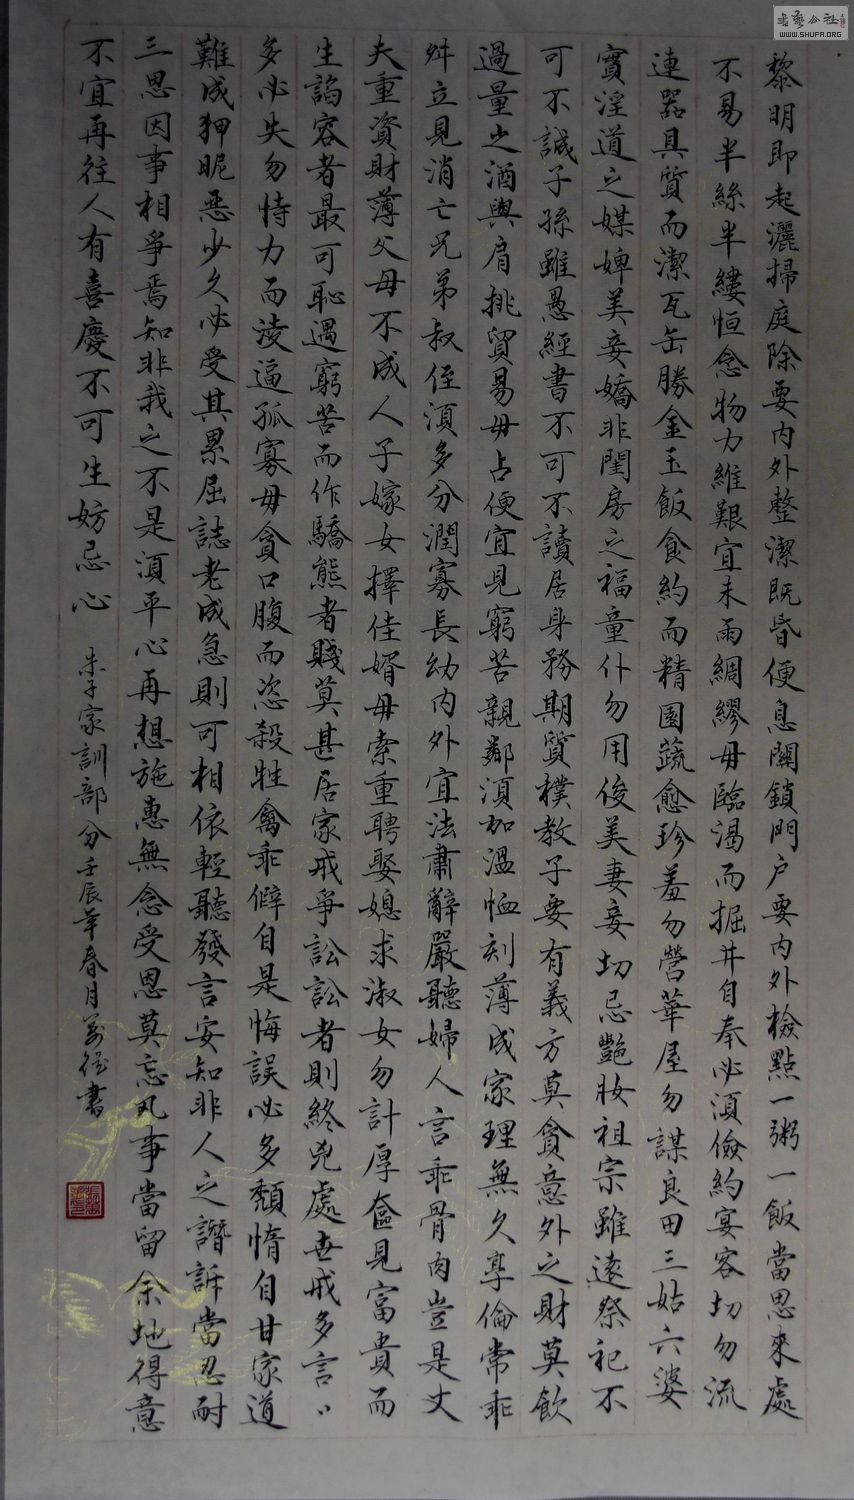 黎明即起灑掃庭除要內外整潔既昏便息關鎖門户要內外檢點一粥一飯當思來處
不易半絲半縷恒念物力維艱宜未雨綢繆毋臨渴而掘井自奉必湏儉約宴客切勿流
連器具質而潔瓦缶勝金玉飯食約而精園蔬愈珍羞勿營華屋勿謀良田三姑六婆
實淫道之媒婢美妾嬌非閨房之福童仆勿用俊美妻妾切忌艷妝祖宗雖遠祭祀不
可不誠子孫雖愚經書不可不讀居身務期質樸教子要有義方莫貪意外之財莫飲
過量之酒與肩挑貿易毋占便宜見窮苦親鄰湏加溫恤刻薄成家理無久享倫常乖
舛立見消亡兄弟叔侄湏多分潤寡長幼內外宜法肅辭嚴聽婦人言乖骨肉豈是丈
夫重資財薄父母不成人子嫁女擇佳婿毋索重聘娶媳求淑女勿計厚奩見富貴而
生諂容者最可恥遇窮苦而作驕態者賤莫甚居家戒爭訟訟者則終兇處世戒多言〻
多必失勿恃力而淩逼孤寡毋貪口腹而恣殺牲禽乖僻自是悔誤必多頹惰自甘家道
難成狎昵惡少久必受其累屈誌老成急則可相依輕聽發言安知非人之譖訴當忍耐
三思因事相爭焉知非我之不是湏平心再想施惠無念受恩莫忘凡事當留余地得意
不宜再往人有喜慶不可生妨忌心
朱子家訓部分壬辰年春月 書
書藝公社
WWW.SHUFA.ORG